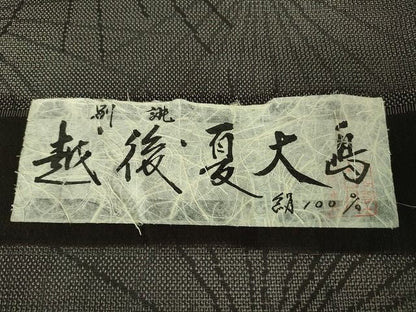 別誂
越後夏大島
絹100%